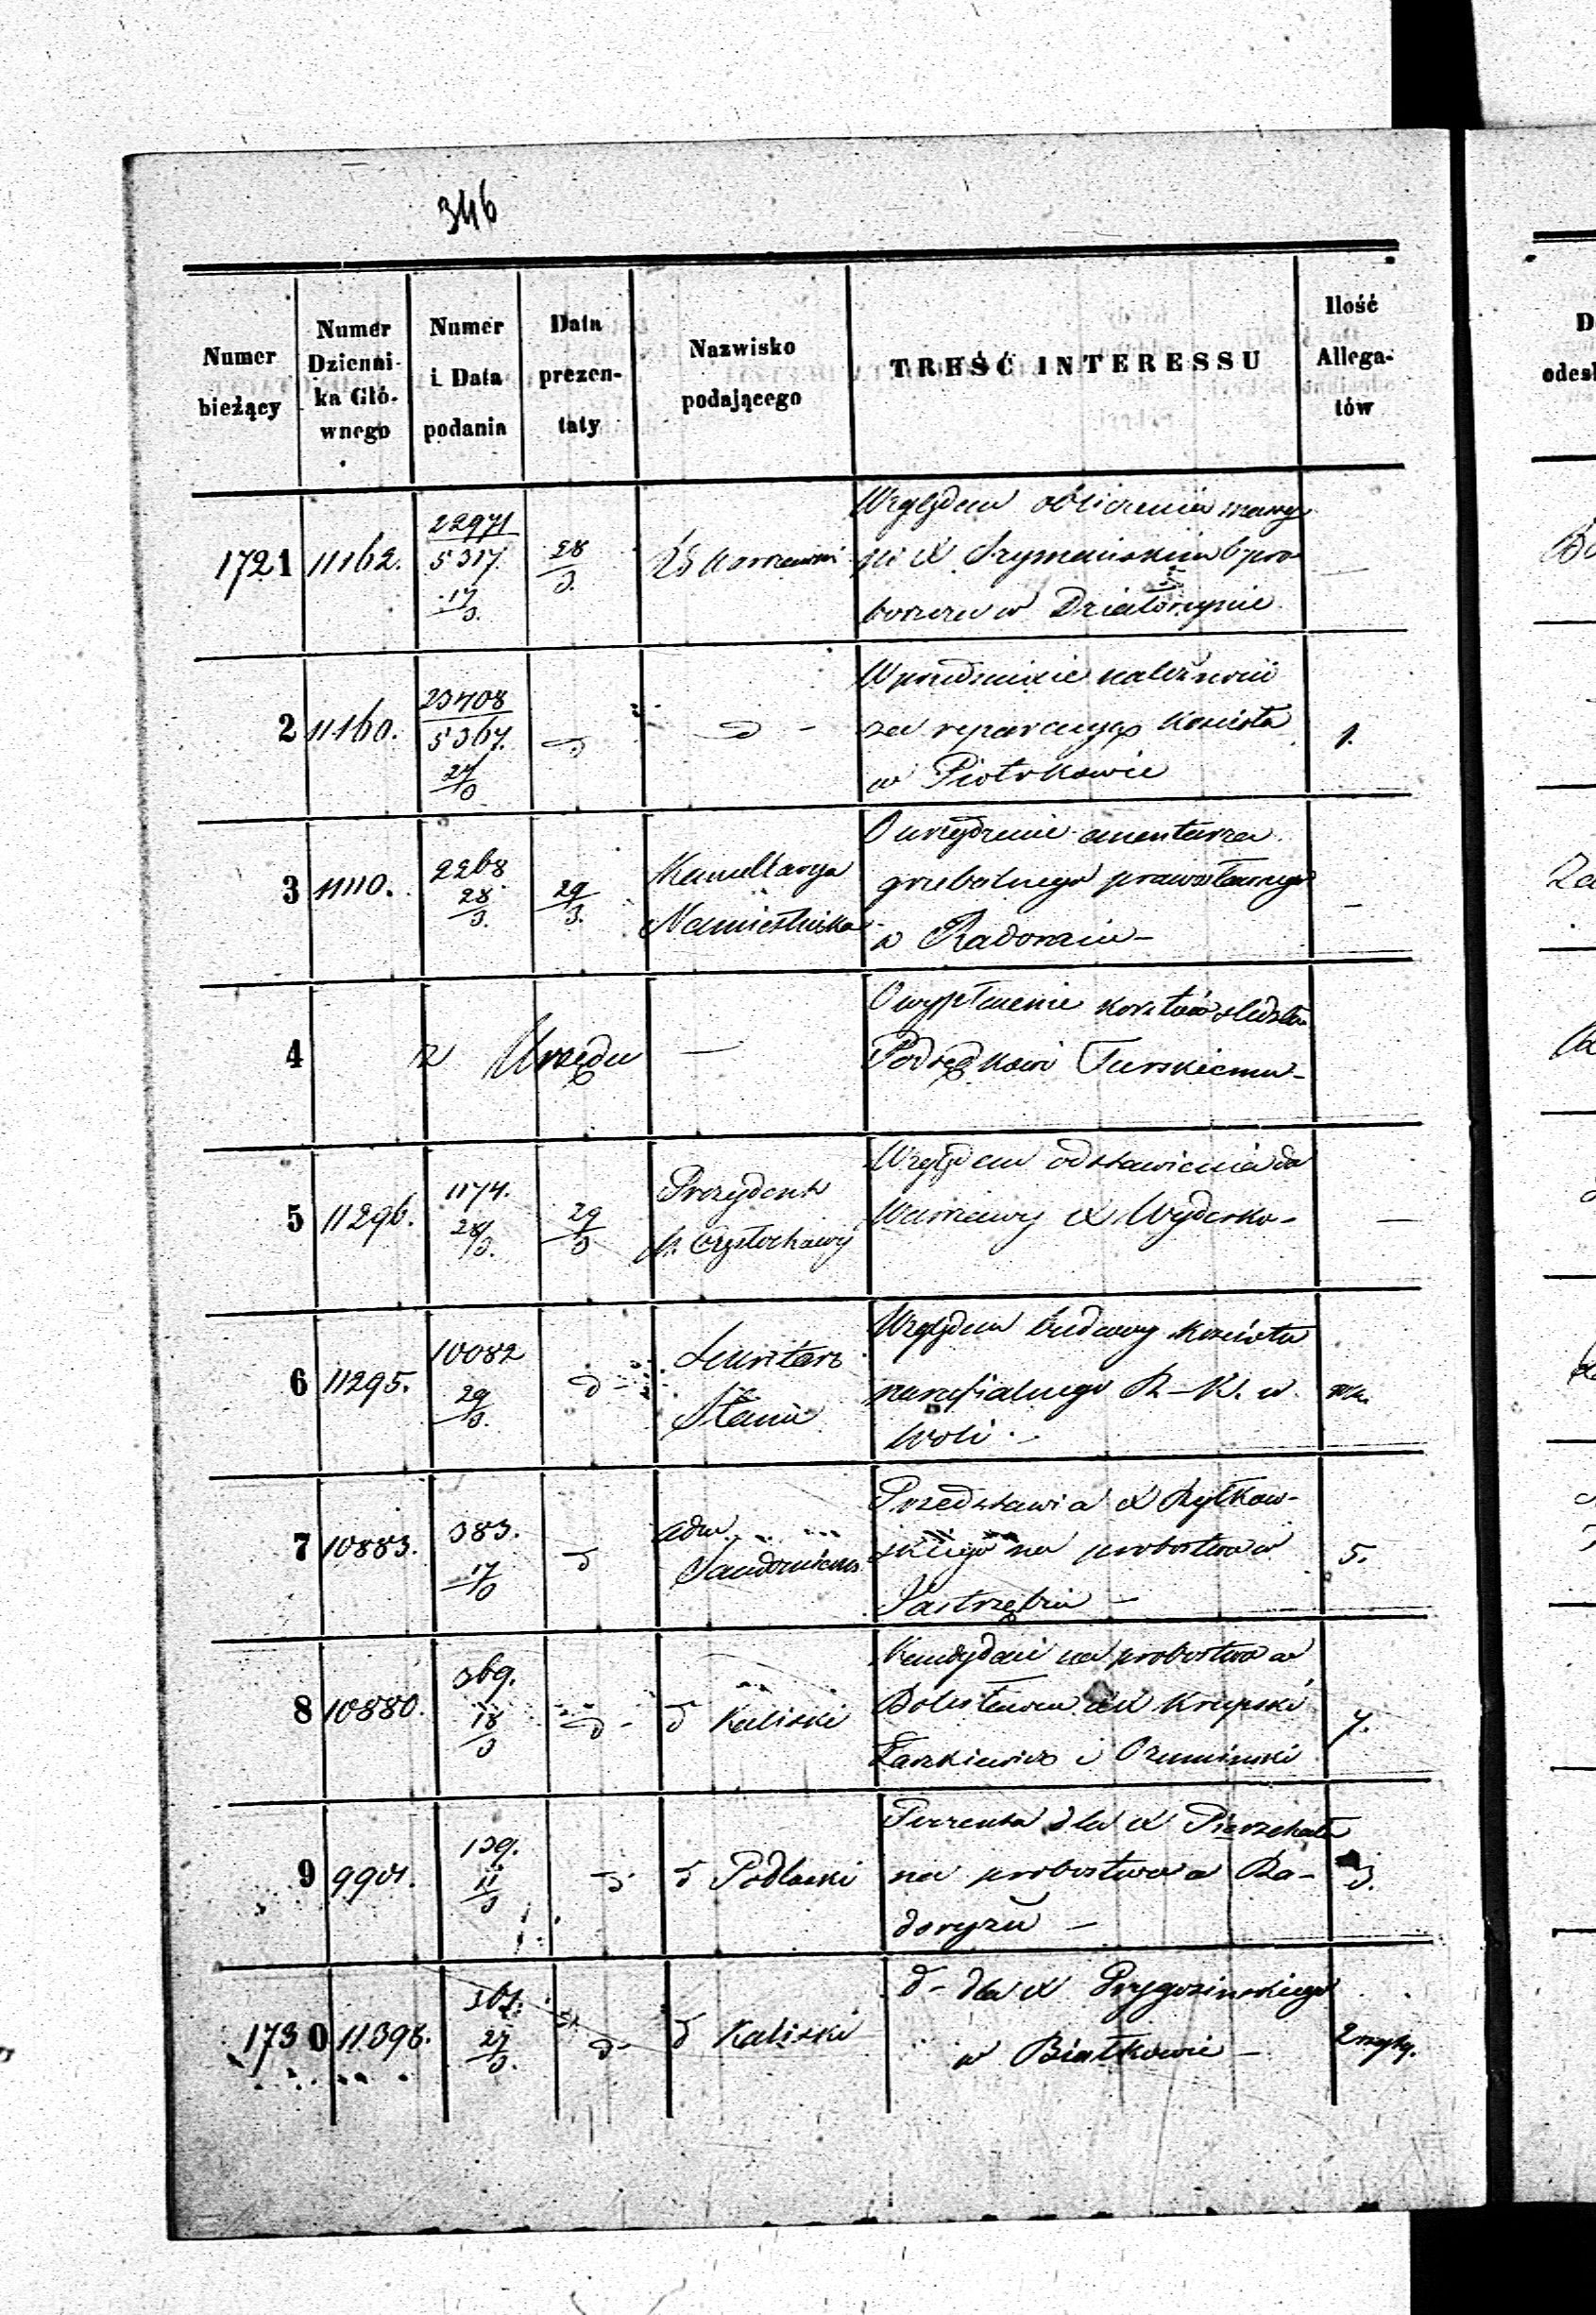 346
Numer bieżący
Numer Dzienni-ka Głó-wnego
Numer i Data podania
Data prezen-taty
Nazwisko podającego
TREŚĆ INTERESSU
Ilość Allega-tów
1721 11162. 22971 5317. 17/3. 28/3.
Względem obliczenia massy
po X Szymańskim b pro-
boszczu w Działoszynie
2 11160. 23708 5367. 27/3 d d -
W przedmiocie należności
za reparacyą Kościoła 1.
w Piotrkowie
3 11110. 2268 28/3. 29/3.
Kancellarya
Namiestnika
O urządzenie cmentarza
grzebalnego prawosławnego
w Radomiu - –
4 z Urzędu —
O wypłacenie kosztów śledztwa
Podsędkowi Turskiemu -
5 11296. 1174. 28/3. 29/3
Prezydent
M. Częstochowy
Względem odstawienia do
Warszawy X Wyderko - —
6 11295. 10082 29/3. d -
Sekretarz
Stanu
Względem budowy Kościoła
parafialnego R-K. w
Woli . -
7 10883. 383. 17/3 d
Adm.
Sandomierski
Przedstawia X Rytkow-
skiego na probostwo w 5.
Jastrzębiu -
8 10880. 369. 18/3 d - d Kaliski
Kandydaci na probostwo w
Bolesławcu XX Krupski 7.
Łaszkiewicz i
9 9901. 139. 11/3 d d Podlaski
Prezenta dla X Pierzchała
na probostwo w Ra- 3.
doryżu -
1730 11398. 27/3. d - d Kaliski
d - dla X
w Białkowie -